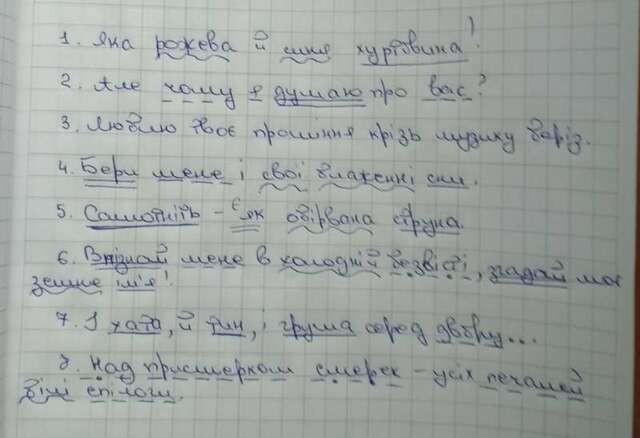 1. Яка рожева й синя хуртовина!
2. Але чому я думаю про вас?
3. Люблю твоє проміння крізь музику беріз.
4. Бери мене і свої блаженні сни.
5. Самотність - є як обірвана струна.
6. Впізнай мене в холодній безвісті, згадай моє
земне ім'я!
7. І хата, й тин, і груша серед двору...
8. Над присмерком смерек - усіх печалей
білі епілоги.